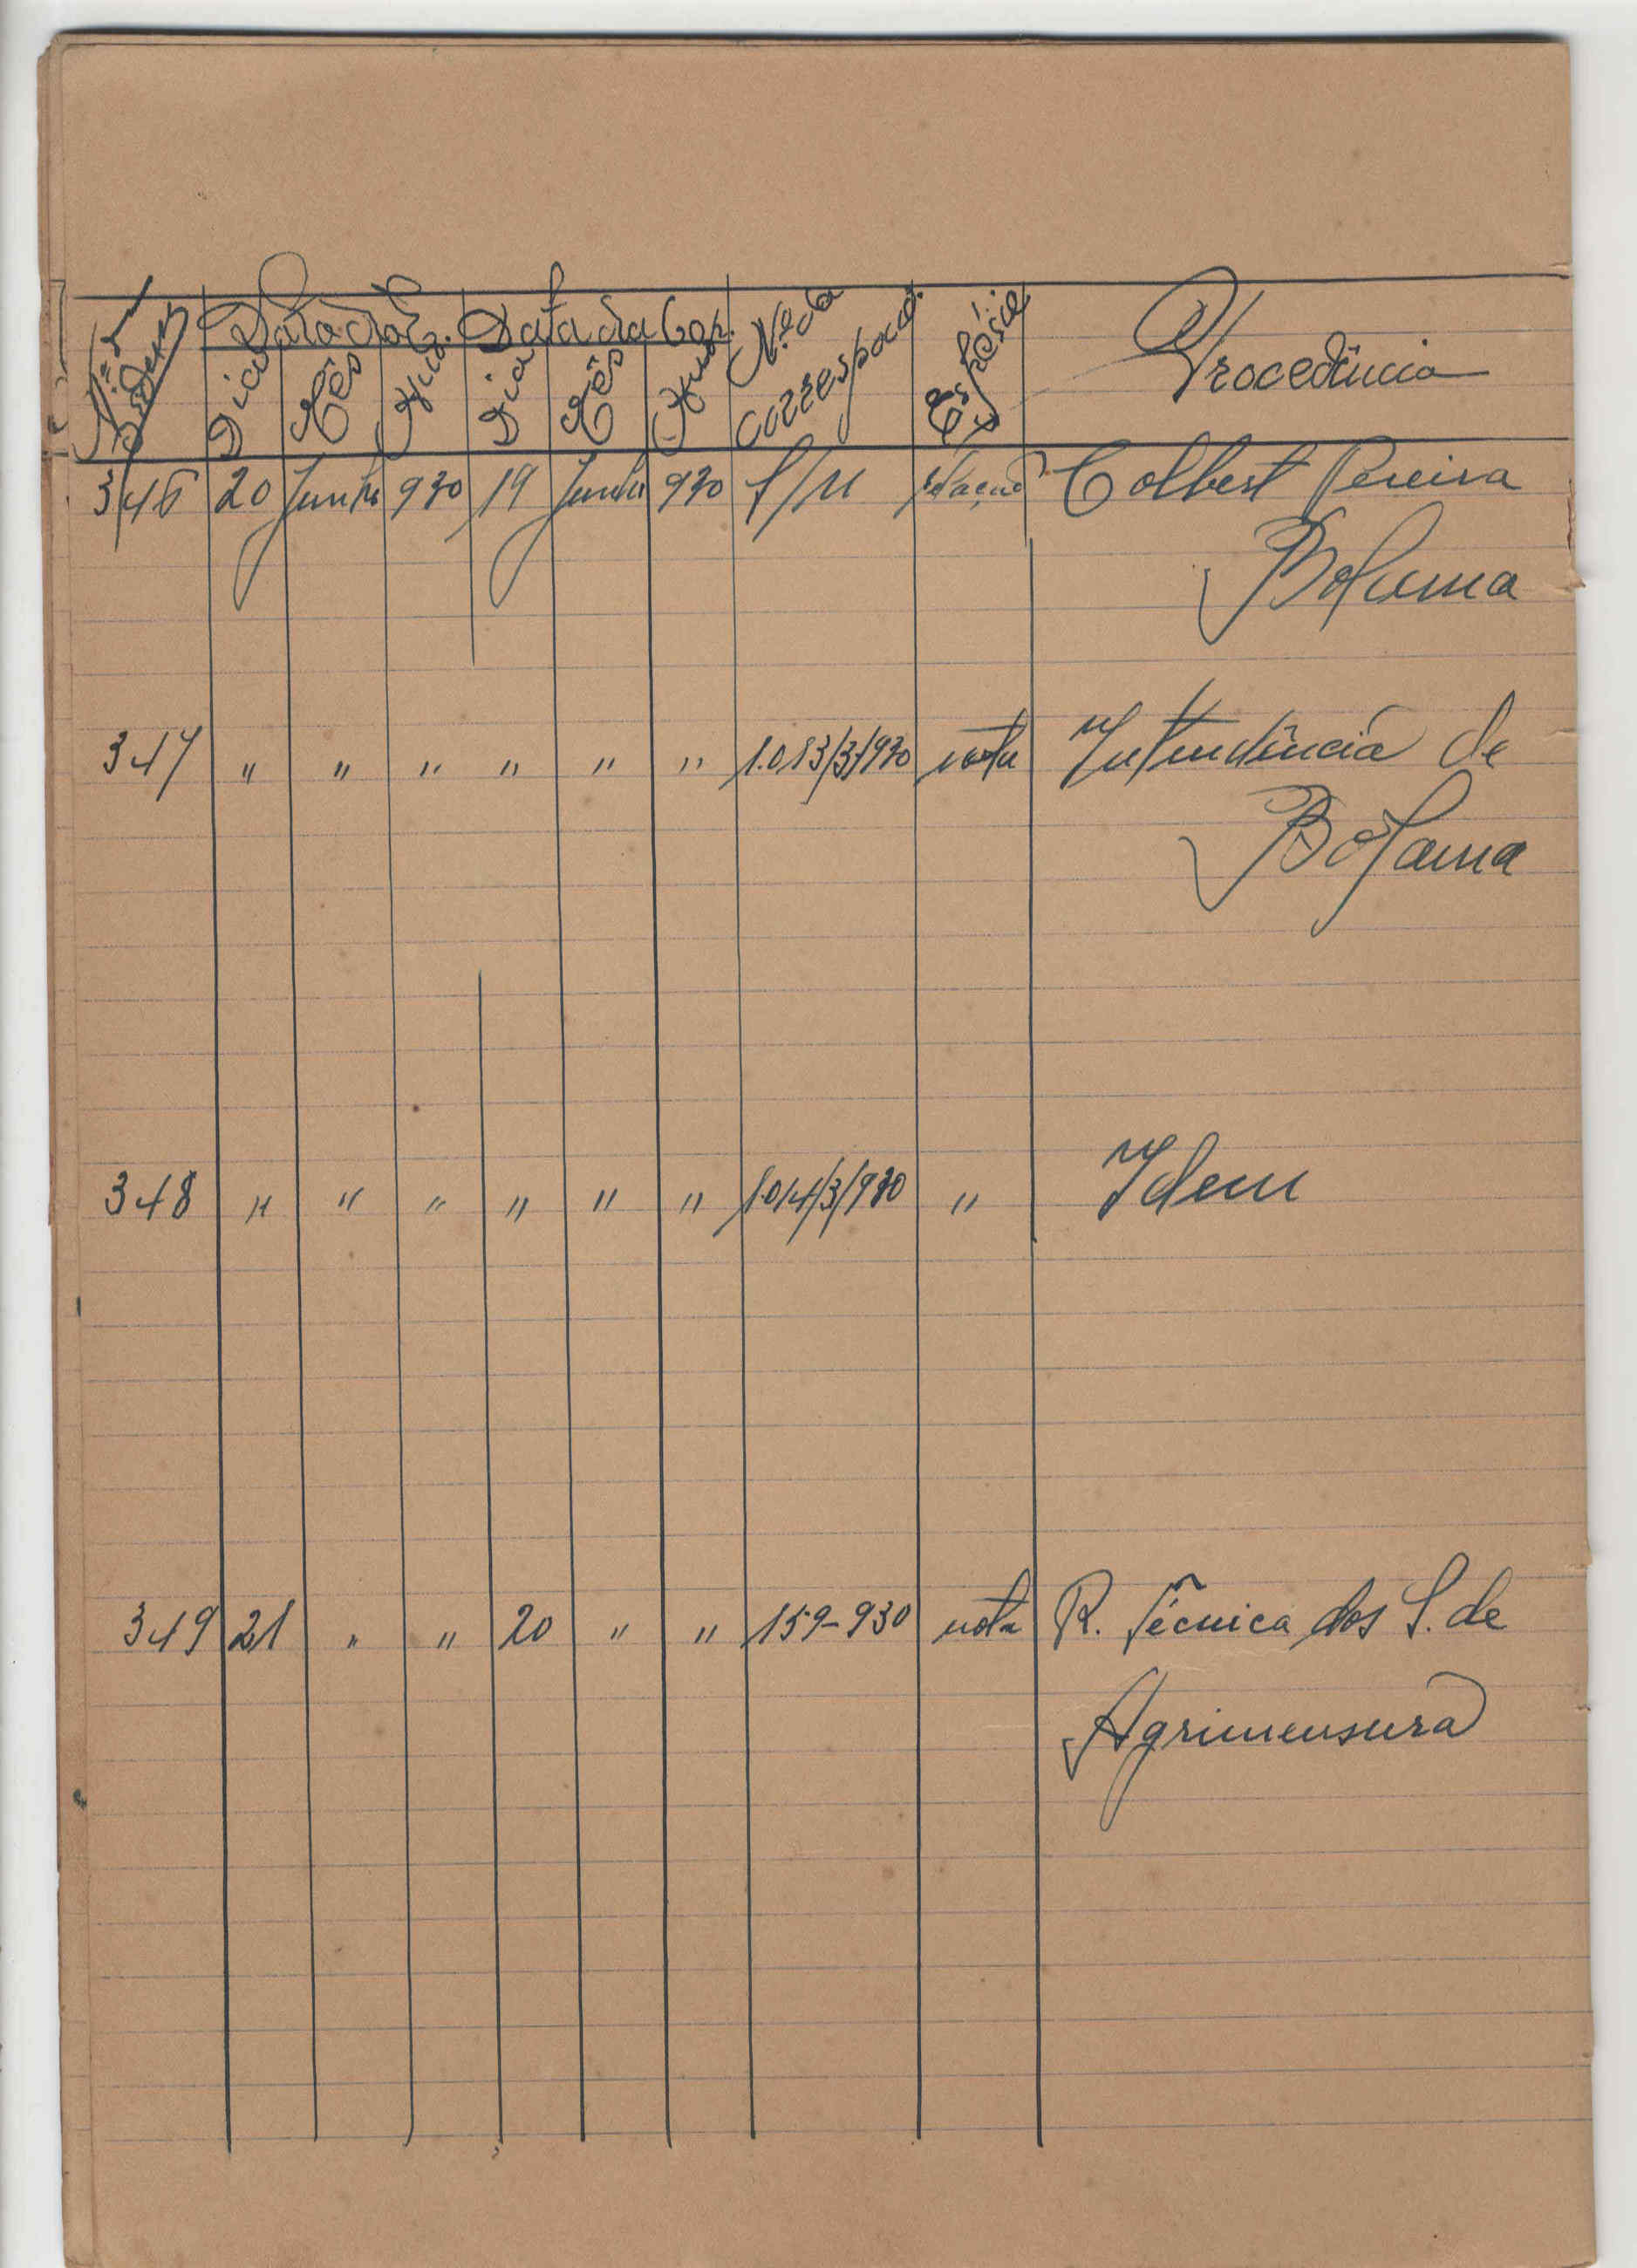 Nº de Ordem Data da Data da Cor. Nº da correspond. Espécie Procedência
Dia Mês Ano Dia Mês Ano
346 20 Junho 930 19 Junho 930 s/n Colbert Pereira
Bolama
347 " " " " " " 1.013/3/930 nota Intendência de
Bolama
348 " " " " " " 1.014/3/930 " Idem
349 21 " " 20 " " 159-930 nota R. Técnica dos S. de
Agrimensura